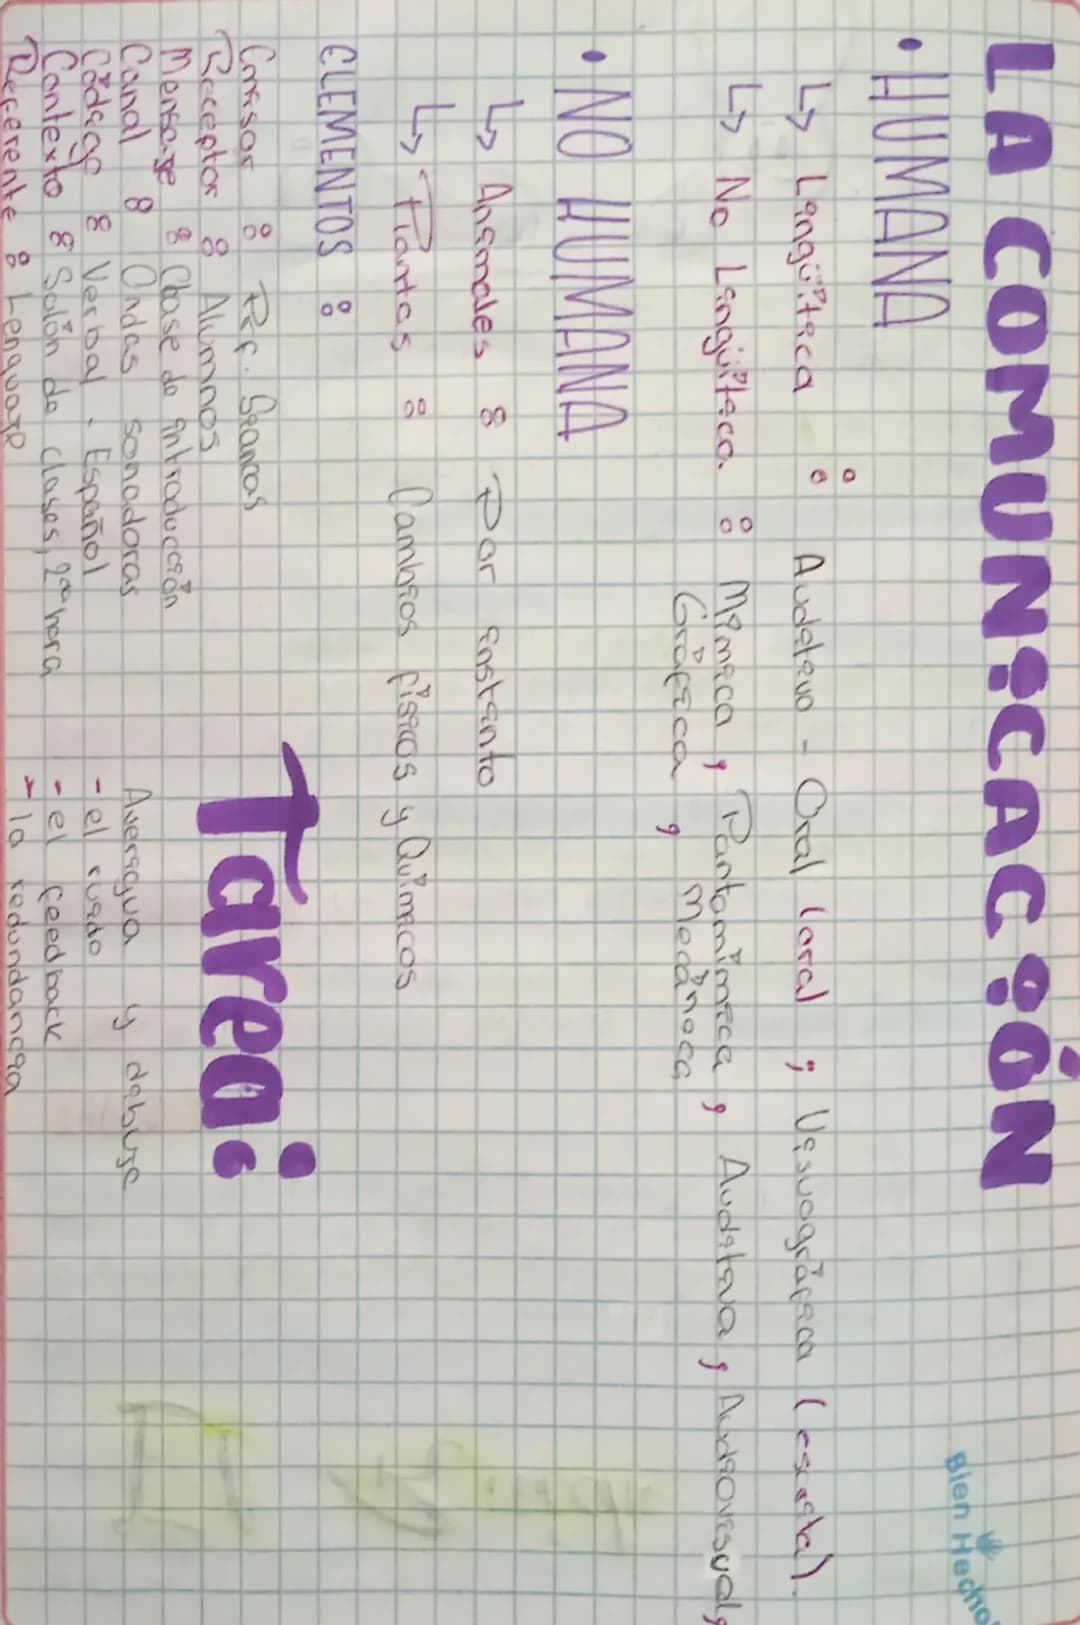 LA COMUNICACIÓN
Bien Hecho!
• HUMANA
↳ Lingüítica : Auditivo - Oral (oral) ; Visuográfica (escrita).
↳ No Lingüítica : Mímica, Pantomímica, Auditiva, Audiovisual,
Gráfica, Mecánica
• NO HUMANA
↳ Animales : Por instinto
↳ Plantas : Cambios físicos y Químicos
ELEMENTOS :
Emisor : Prf. Biancos
Receptor : Alumnos
Mensaje : Clase de introducción
Canal : Ondas sonadoras
Código : Verbal. Español
Contexto : Salón de clases, 2da hora
Referente : Lenguaje
Tarea:
Averigua y dibuje
- el ruido
- el feedback
- la redundancia